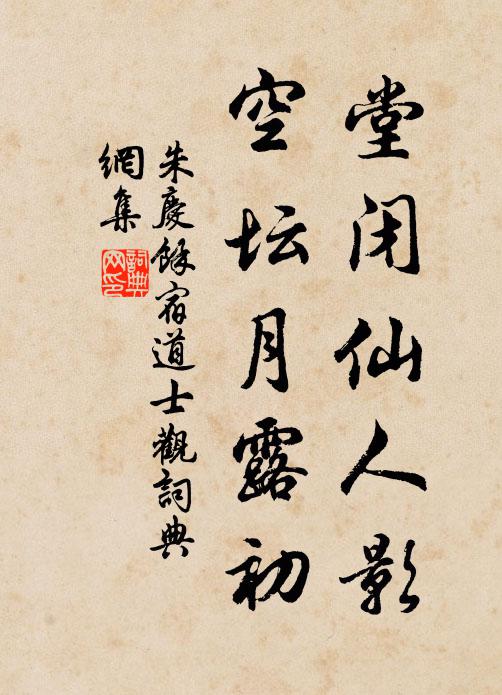 堂闭仙人影
空坛月露初
朱慶餘宿道士觀詞典
網集
詞典
网印